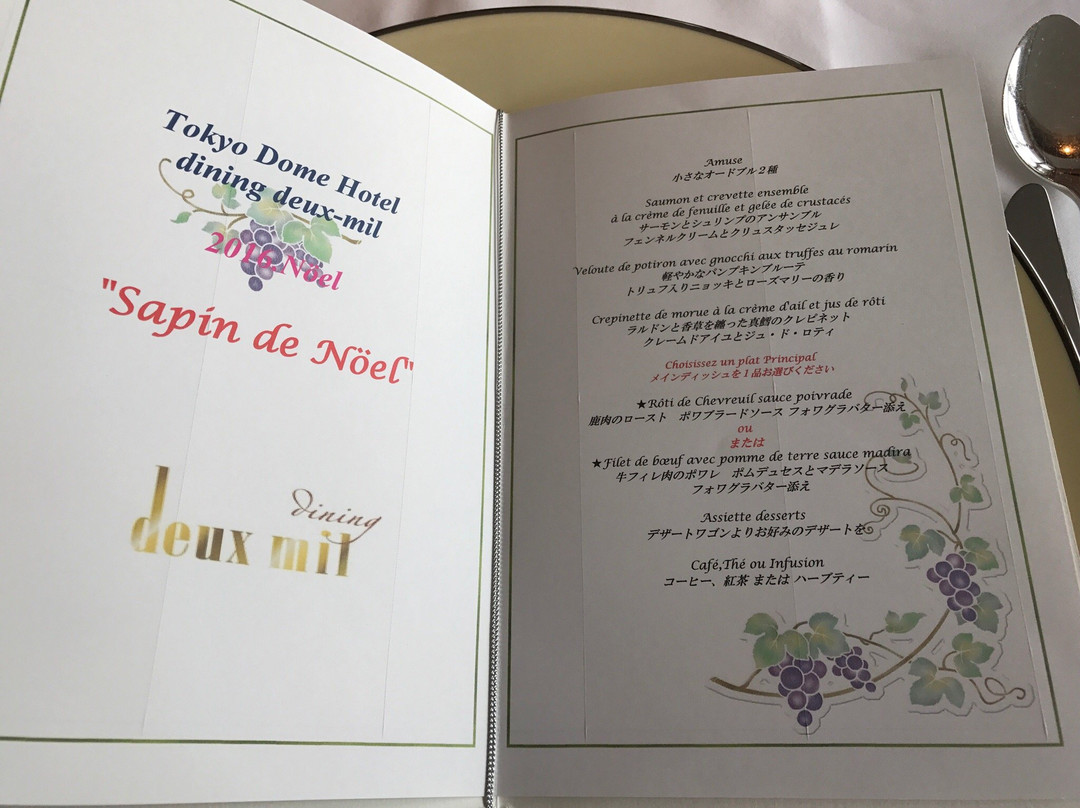 Tokyo Dome Hotel
dining deux-mil
2016.Nöel
"Sapin de Nöel"
dining
deux mil
Amuse
小さなオードブル２種
Saumon et crevette ensemble
à la crème de fenuille et gelée de crustacés
サーモンとシュリンプのアンサンブル
フェンネルクリームとクリュスタッセジュレ
Veloute de potiron avec gnocchi aux truffes au romarin
軽やかなパンプキンブルーテ
トリュフ入りニョッキとローズマリーの香り
Crepinette de morue à la crème d'ail et jus de rôti
ラルドンと香草を纏った真鱈のクレピネット
クレームドアイユとジュ・ド・ロティ
Choisissez un plat Principal
メインディッシュを１品お選びください
★Rôti de Chevreuil sauce poivrade
鹿肉のロースト　ポワブラードソース フォワグラバター添え
ou
または
★Filet de bœuf avec pomme de terre sauce madira
牛フィレ肉のポワレ　ポムデュセスとマデラソース
フォワグラバター添え
Assiette desserts
デザートワゴンよりお好みのデザートを
Café,Thé ou Infusion
コーヒー、紅茶 または ハーブティー